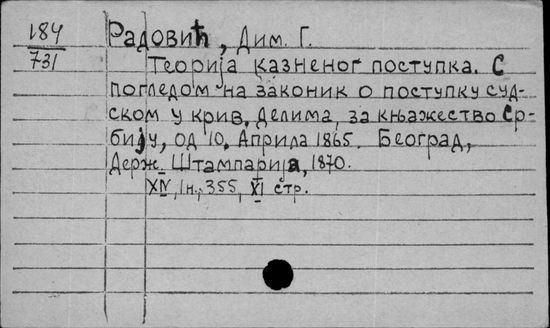 184
731
Радовић, Дим. Г.
Теорија казненог поступка. С
погледом на законик о поступку суд-
ском у крив. делима, за књажество Ср-
бију, од 10. Априла 1865. Београд,
Держ. Штампарија, 1870.
XIV, 1н., 355, XI стр.